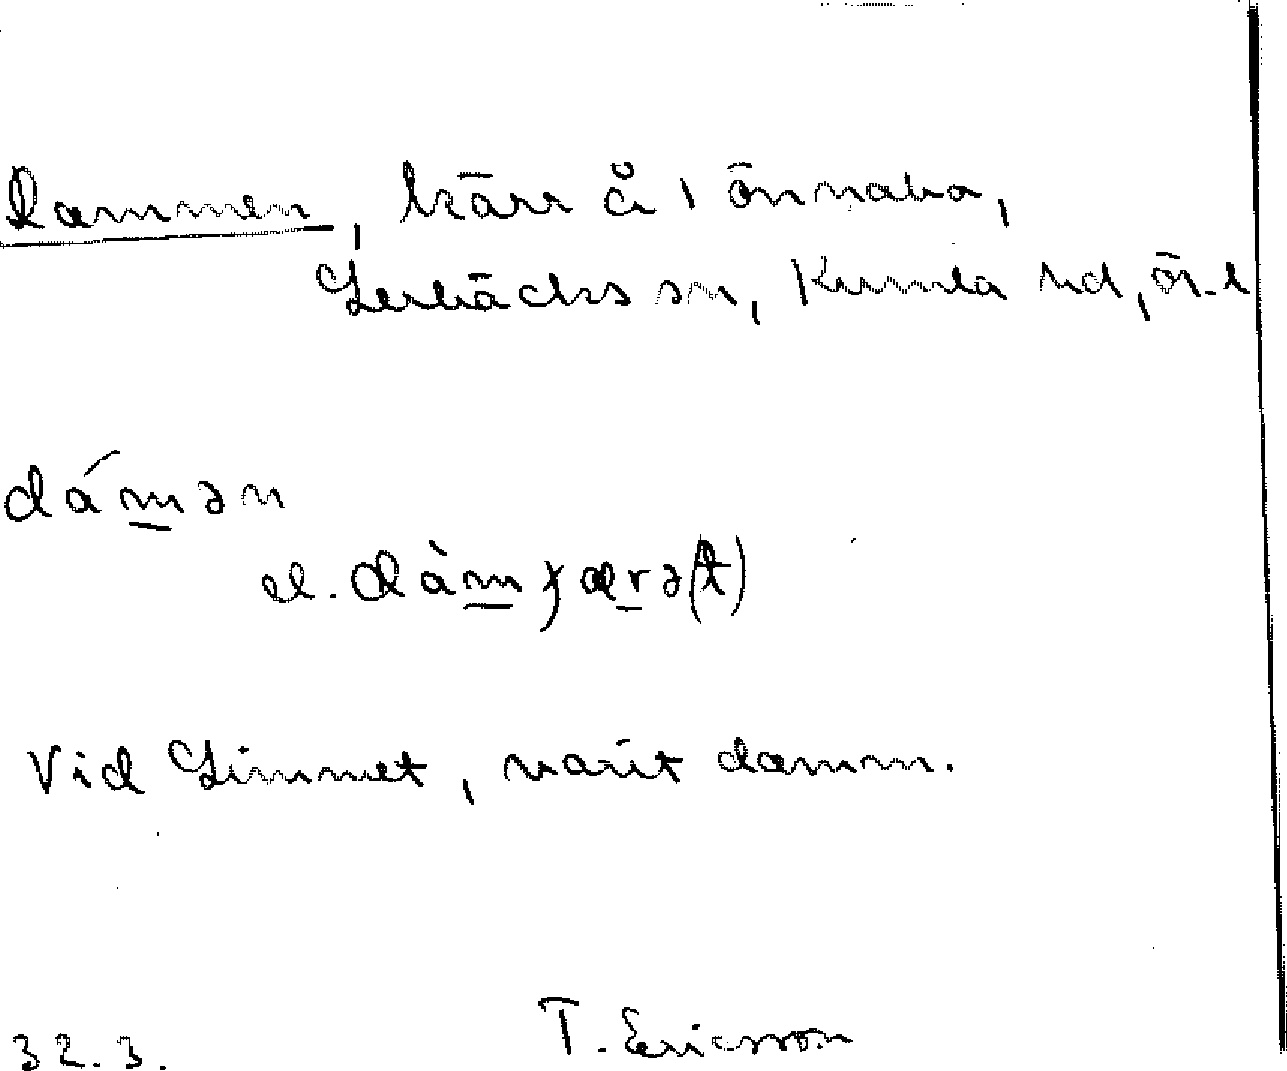 Dammen, kärr å Tönnabo,
Lerbäcks sn, Kumla hd, ör.l
dáman
el. dàmkærə(t)
Vid Limmet, varit damm.
32.3. T. Ericsson